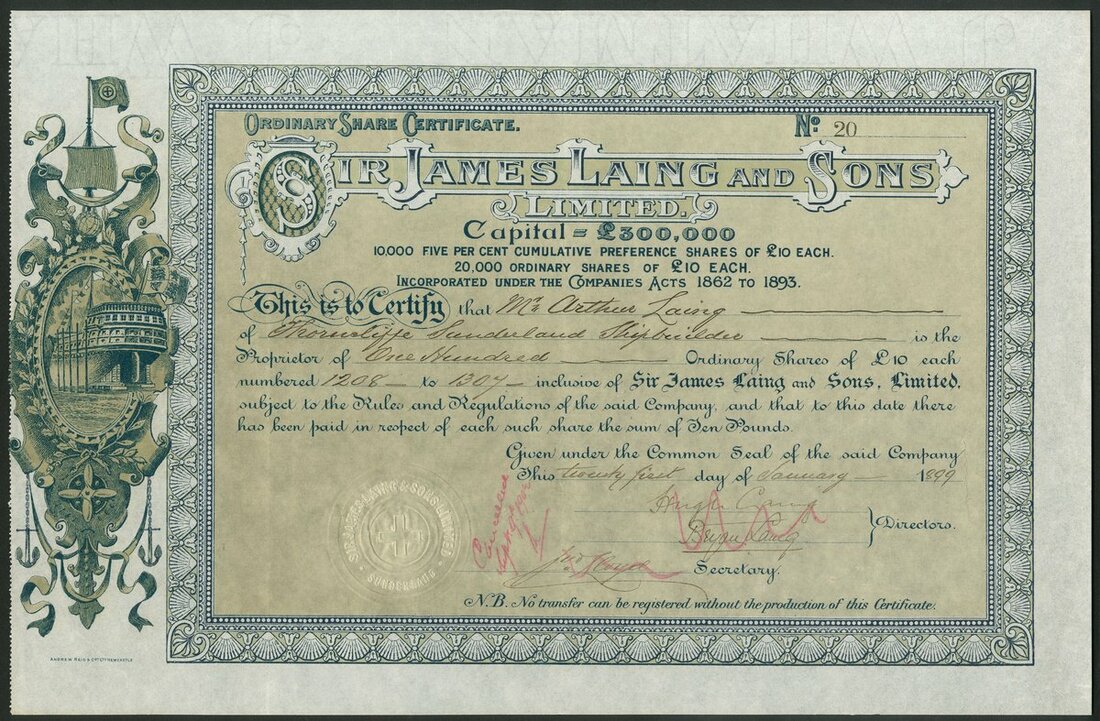 ORDINARY SHARE CERTIFICATE.
Nº 20
SIR JAMES LAING AND SONS
LIMITED.
Capital = £300,000
10,000 FIVE PER CENT CUMULATIVE PREFERENCE SHARES OF £10 EACH.
20,000 ORDINARY SHARES OF £10 EACH.
INCORPORATED UNDER THE COMPANIES ACTS 1862 TO 1893.
This is to Certify that Mr Arthur Laing
of Thorncliffe Sunderland Shipbuilder is the
Proprietor of One Hundred Ordinary Shares of £10 each
numbered 1208 to 1307 inclusive of Sir James Laing and Sons, Limited,
subject to the Rules and Regulations of the said Company, and that to this date there
has been paid in respect of each such share the sum of Ten Pounds.
Given under the Common Seal of the said Company
This twenty first day of January 1899
Hugh Laing
Bryan Laing
Directors.
Secretary.
SIR JAMES LAING & SONS LIMITED
SUNDERLAND
N.B. No transfer can be registered without the production of this Certificate.
ANDREW REID & CO LTD NEWCASTLE